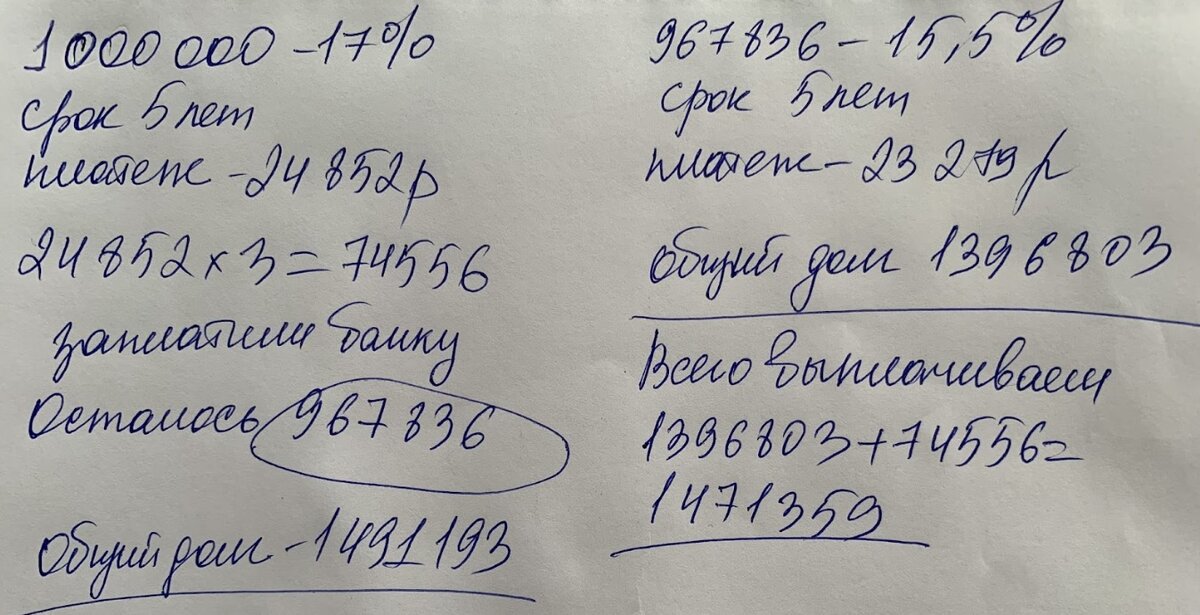 1000 000 - 17%
срок 5 лет
платеж - 24 852р
24852 x 3 = 74556
заплатили банку
Осталось 967 836
Общий долг - 1491 193
967836 - 15,5%
срок 5 лет
платеж - 23 279 р
общий долг 1396803
Всего выплачиваем
1396803 + 74556 =
1471359